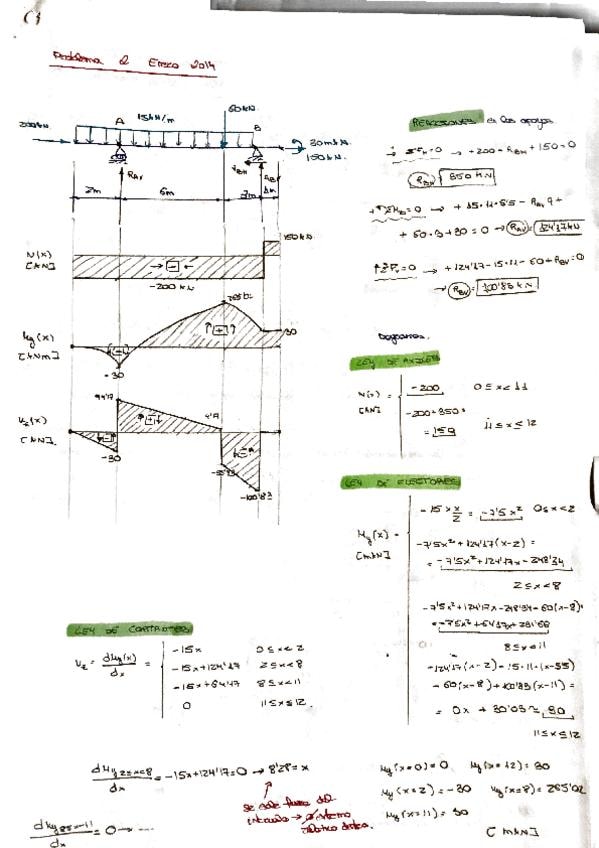 C1
Problema 2 Enero 2014
200kN.
A
15kN/m
60kN.
B
30mkN
150kN.
RAV
RBH
2m
6m
3m
1m
N(x)
[kN]
-200 kN
150kN
My(x)
[kNm]
-30
30
Vz(x)
[kN].
94'17
4'17
-30
-100'83
REACCIONES en los apoyos
→ +200 - RBH + 150 = 0
RBH = 350 kN
= 0 → + 15·11·5'5 - RAV 9 +
+ 60·3 + 30 = 0 → RAV = 124'17kN
= 0 → +124'17-15·11-60+RBV=0
→ RBV = 100'83 kN
Diagramas.
LEY DE AXILES
N(x) =
[kN]
-200 0 ≤ x < 11
-200+350 =
= 150 11 ≤ x ≤ 12
LEY DE FLECTORES
My(x) =
[mkN]
-15 x x/2 = -7'5x² 0 ≤ x < 2
-7'5x² + 124'17(x-2) =
= -7'5x² + 124'17x - 248'34
2 ≤ x < 8
-7'5x² + 124'17x - 248'34 - 60(x-8) =
= -7'5x² + 64'17x + 231'66
8 ≤ x < 11
-60(x-8) + 100'83(x-11) =
= 0x + 30'03 ≈ 30
11 ≤ x ≤ 12
LEY DE CORTANTES
Vz = dMy(x)/dx =
-15x 0 ≤ x < 2
-15x+124'17 2 ≤ x < 8
-15x+64'17 8 ≤ x < 11
0 11 ≤ x ≤ 12.
dMy 2≤x<8/dx = -15x+124'17=0 → 8'28 = x
se sale fuera del
intervalo →
dMy 8≤x<11/dx = 0 → ...
My(x=0) = 0 My(x=12) = 30
My(x=2) = -30 My(x=8) = 265'02
My(x=11) = 30
[mkN]